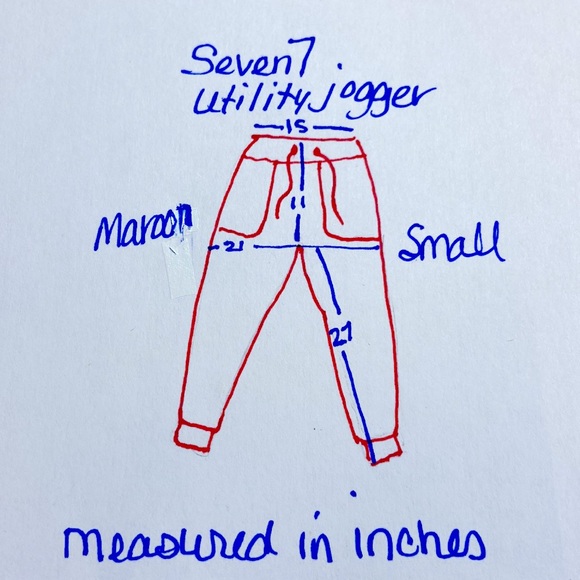 Seven7
utility jogger
15
11
Maroon
21
Small
27
measured in inches